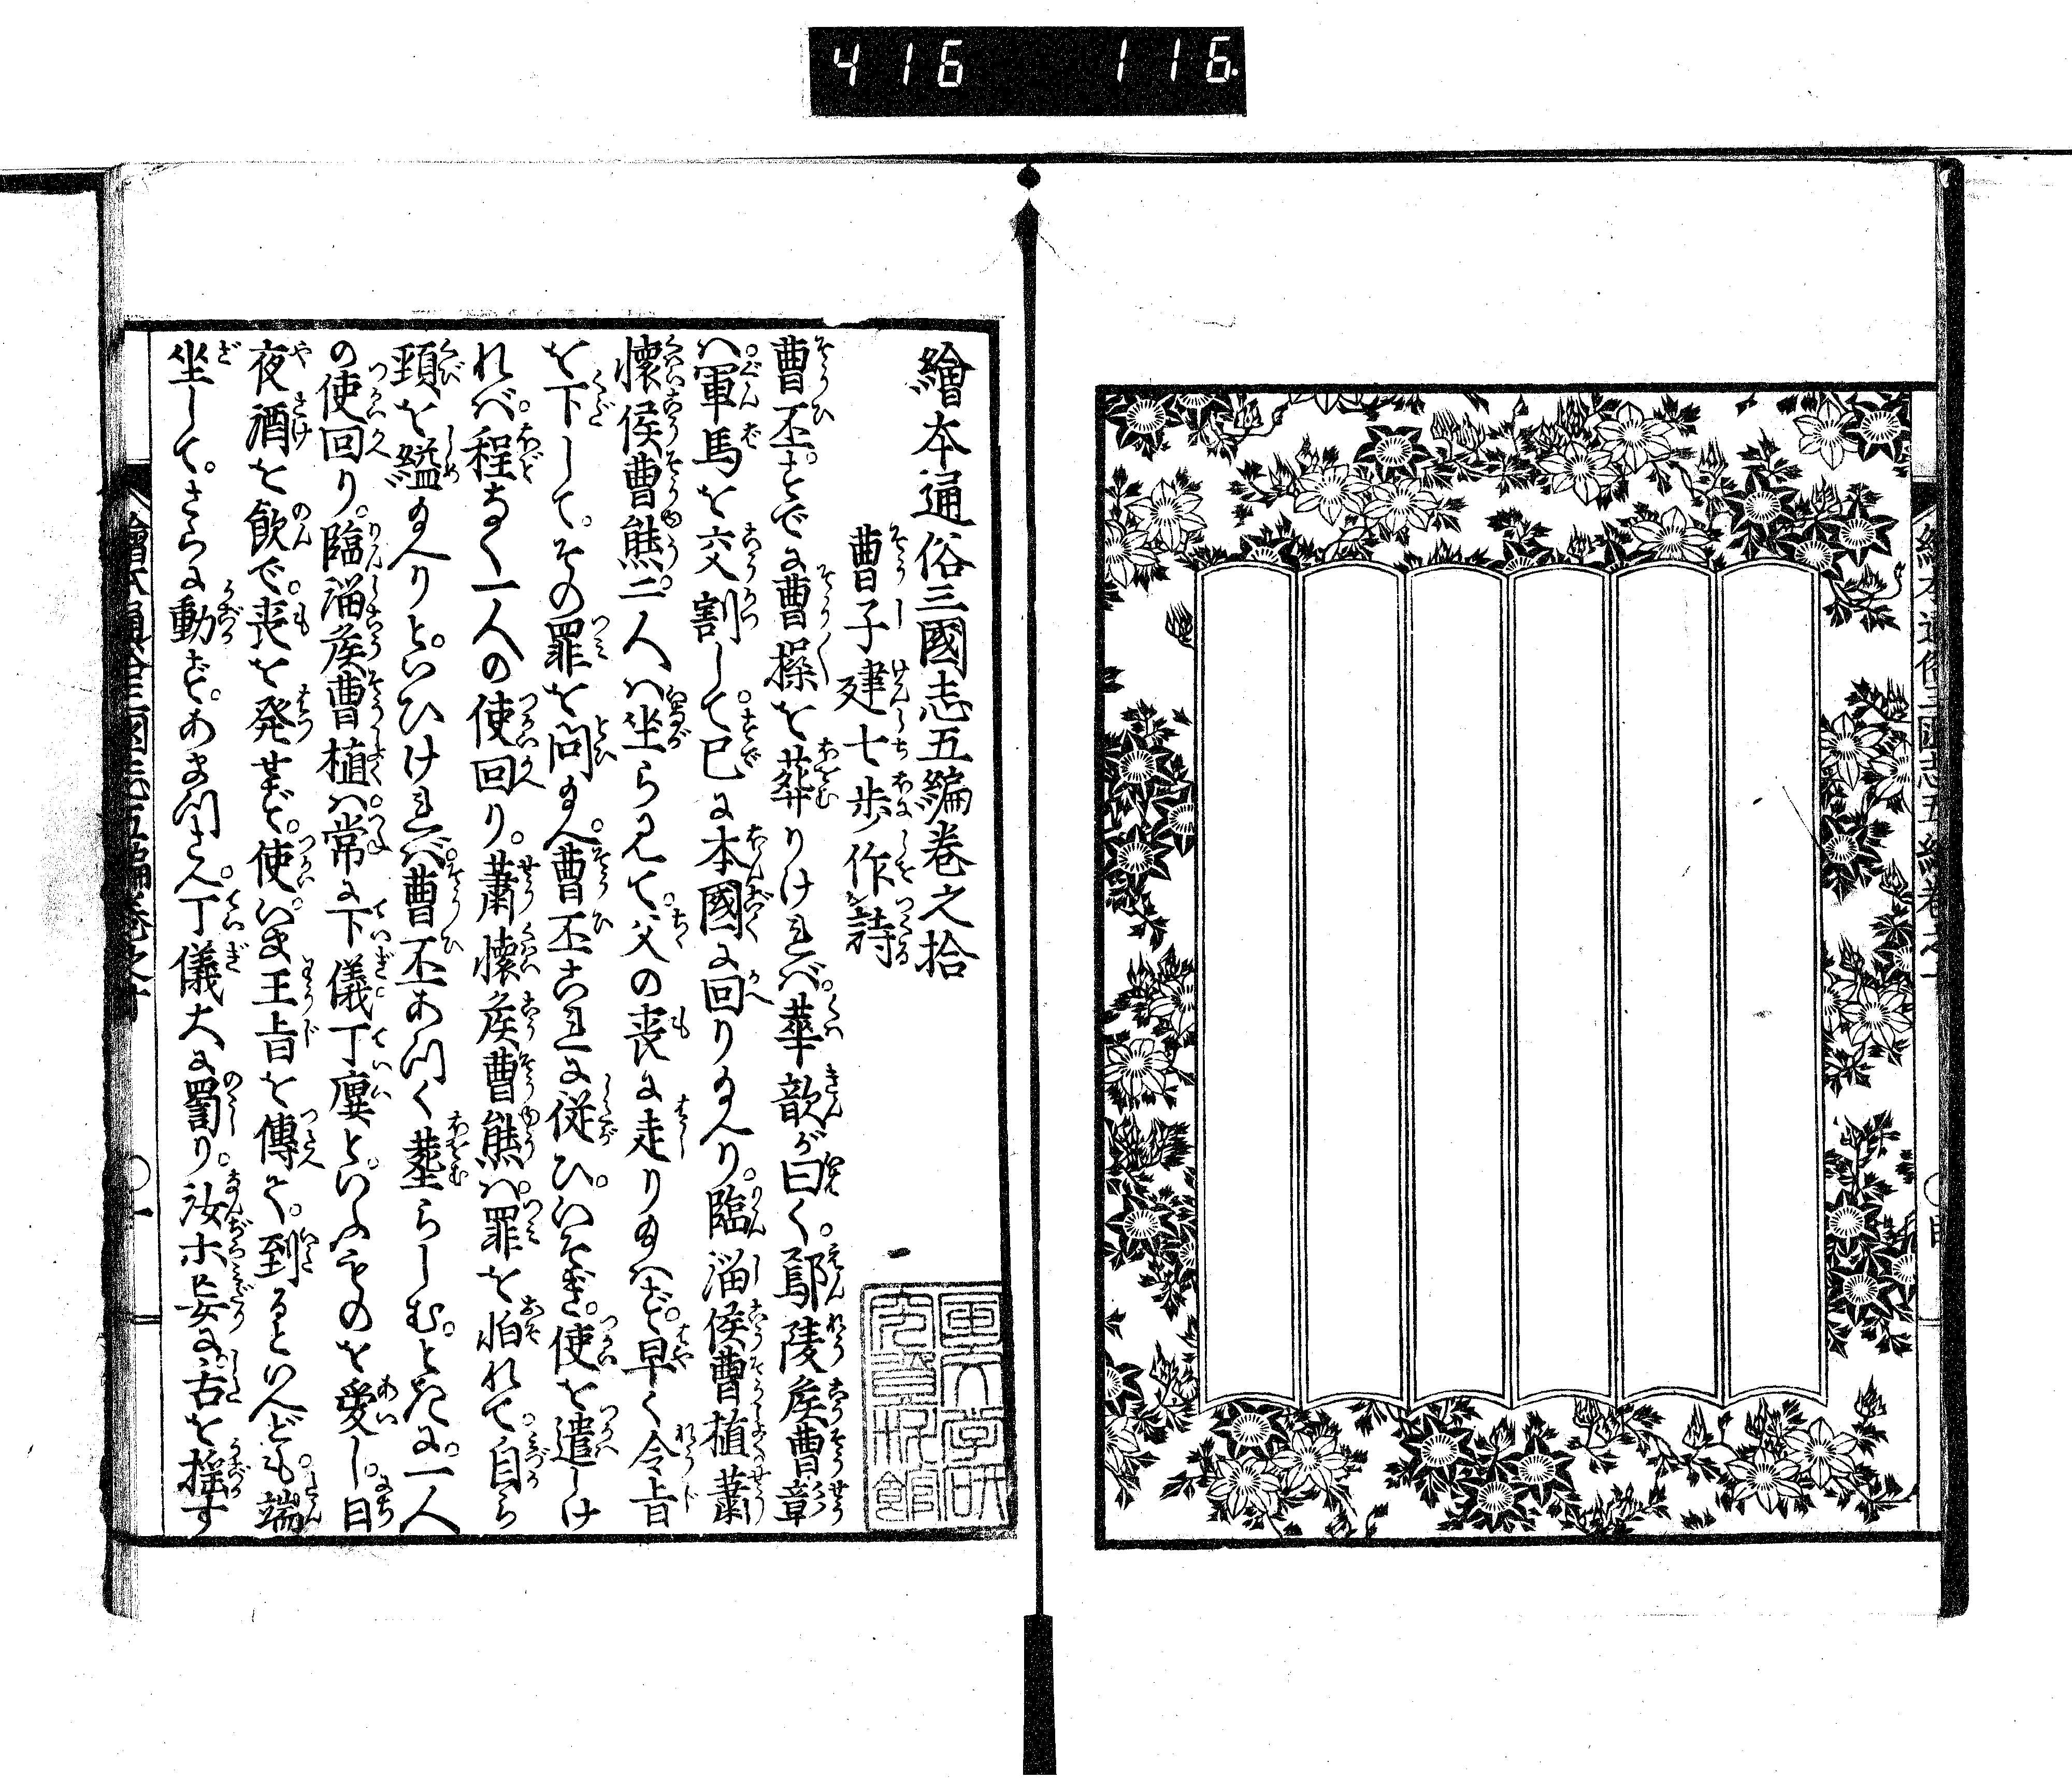 416 116.
繪本通俗三國志五編巻之拾
曹子建七歩作詩
曹丕。すでに曹操を葬りければ。華歆が曰く。鄢陵矦曹彰
ハ。軍馬を交割して。已に本國に回り給へり。臨淄侯曹植蕭
懷侯曹熊。二人ハ坐ら見て。父の喪に走り給ハず。早く令旨
を下して。その罪を問給へ。曹丕これに従ひ。いそぎ。使を遣しけ
れバ。程なく一人の使回り。蕭懷矦曹熊ハ。罪を怕れて自ら
頸を縊給へりと。いひけれバ。曹丕あつく葬らしむ。ときに。一人
の使回り。臨淄矦曹植ハ。常に丁儀丁廙と。いふものを愛し。日
夜酒を飲で。喪を発せず。使。いま王旨を傳て。到るといへども。端
坐して。さらに動ず。あまつさへ。丁儀大に罵り。汝ホ妄に。舌を揺す
繪本通俗三國志五編巻之十
〇一